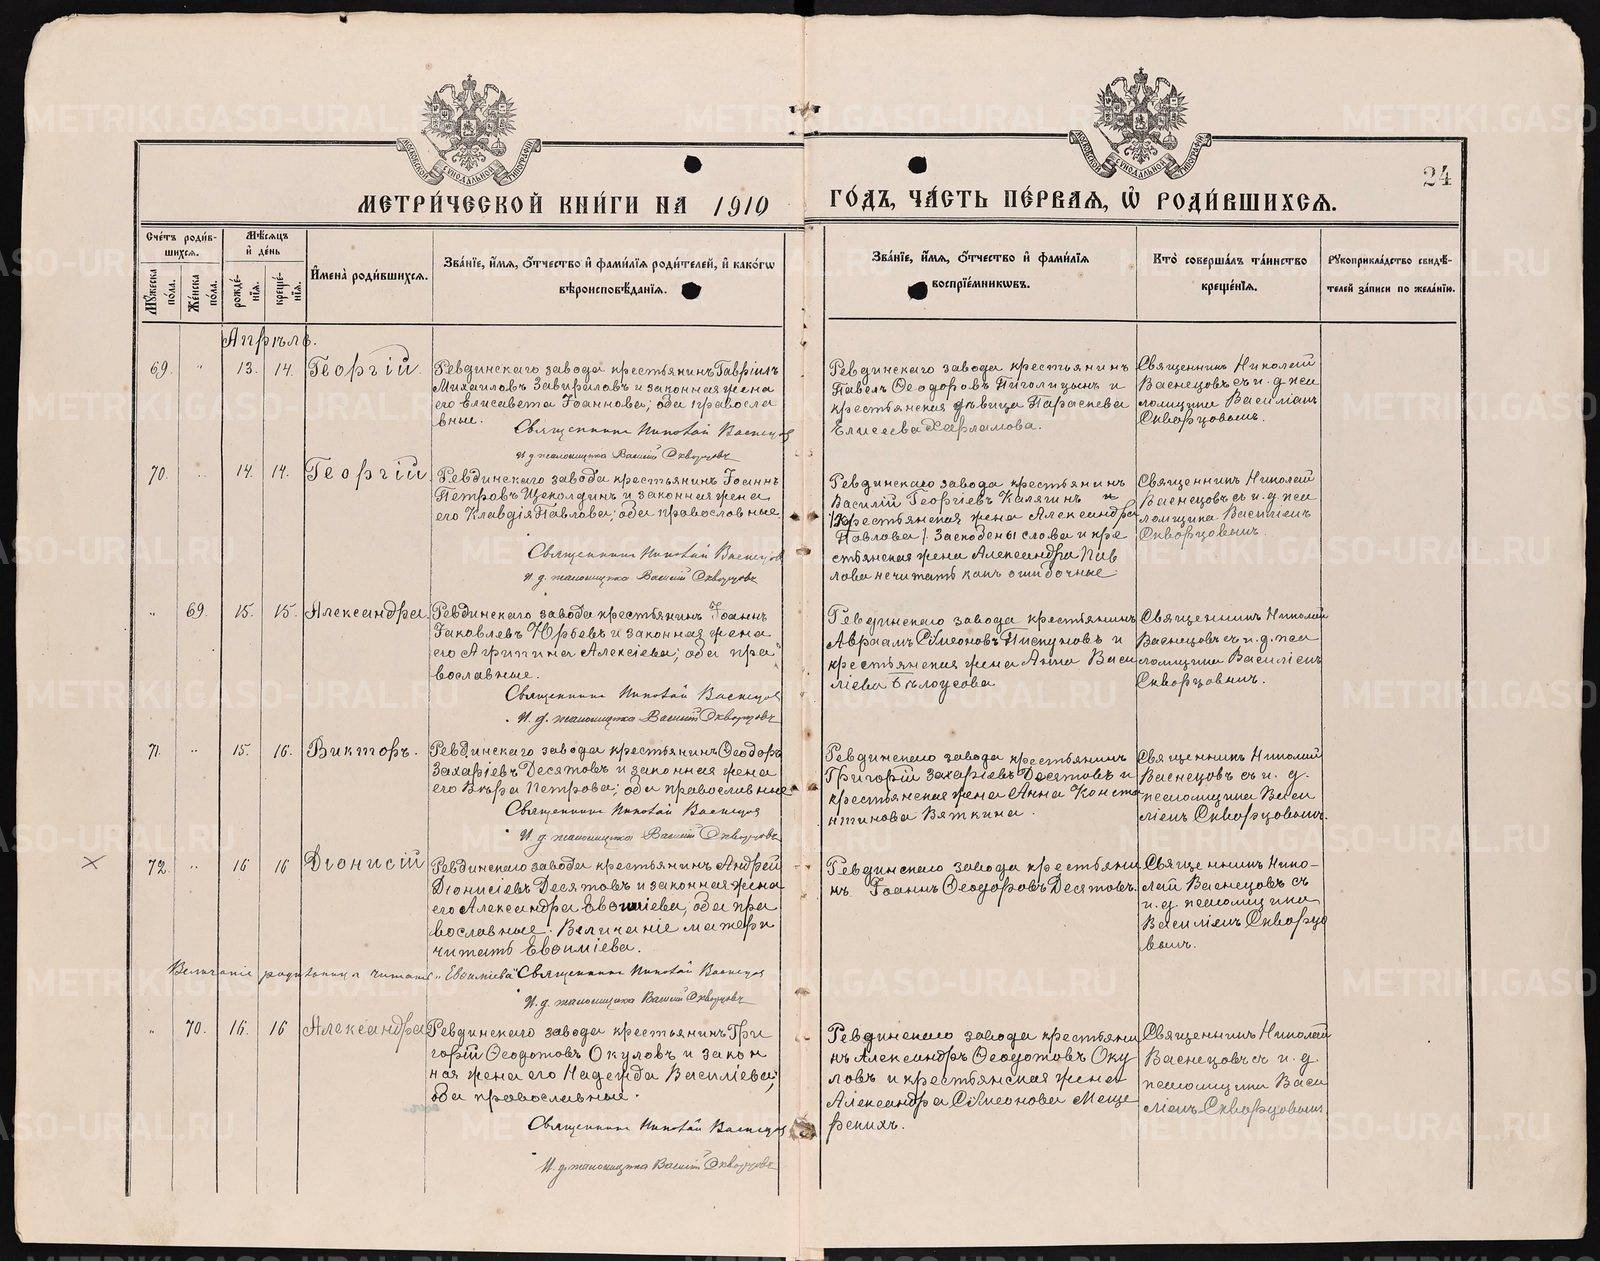 МОСКОВСКОЙ СѴНОДАЛЬНОЙ ТИПОГРАФІИ
МОСКОВСКОЙ СѴНОДАЛЬНОЙ ТИПОГРАФІИ
24
МЕТРИ́ЧЕСКОЙ КНИ́ГИ НА 1910
ГО́ДЪ, ЧА́СТЬ ПЕ́РВАѦ, Ѽ РОДИ́ВШИХСѦ.
Сче́тъ роди́в-
шихсѧ.
Мꙋ́жеска по́ла.
Же́нска по́ла.
Мѣ́сѧцъ
и҆ де́нь
рожде́-
нїѧ.
креще́-
нїѧ.
И҆мена̀ роди́вшихсѧ.
Зва́нїе, и҆́мѧ, ѻ҆́тчество и҆ фами́лїѧ роди́телей, и҆ како́гѡ
вѣроисповѣ́данїѧ.
Зва́нїе, и҆́мѧ, ѻ҆́тчество и҆ фами́лїѧ
воспрїе́мникѡвъ.
Кто̀ соверша́лъ та́инство
креще́нїѧ.
Рꙋкоприкла́дство свидѣ́-
телей за́писи по жела́нїю.
Апрѣль.
69. " 13. 14. Георгій
Ревдинскаго завода крестьянинъ Гавріилъ
Михаиловъ Завираловъ и законная жена
его Елисавета Іоаннова; оба правосла
вные.
Священникъ Николай Васнецовъ
И. д. псаломщика Василій Скворцовъ
Ревдинскаго завода крестьянинъ
Павелъ Ѳеодоровъ Пиголицынъ и
крестьянская дѣвица Параскева
Елисеева Харламова.
Священникъ Николай
Васнецовъ съ и. д. пса
ломщика Василіемъ
Скворцовымъ.
70. " 14. 14. Георгій
Ревдинскаго завода крестьянинъ Іоаннъ
Петровъ Щеколдинъ и законная жена
его Клавдія Павлова; оба православные
Священникъ Николай Васнецовъ
И. д. псаломщика Василій Скворцовъ
Ревдинскаго завода крестьянинъ
Василій Георгіевъ Калягинъ и
/крестьянская жена Александра
Павлова/ Заскобены слова и кре
стьянская жена Александра Пав
лова нечитать какъ ошибочные
Священникъ Николай
Васнецовъ съ и. д. пса
ломщика Василіемъ
Скворцовымъ.
" 69. 15. 15. Александра.
Ревдинскаго завода крестьянинъ Іоаннъ
Іаковлевъ Юрьевъ и законная жена
его Агрипина Алексіева; оба пра
вославные.
Священникъ Николай Васнецовъ
И. д. псаломщика Василій Скворцовъ
Ревдинскаго завода крестьянинъ
Авраамъ Сѵмеоновъ Пискуновъ и
крестьянская жена Анна Васи
ліева Бѣлоусова
Священникъ Николай
Васнецовъ съ и. д. пса
ломщика Василіемъ
Скворцовымъ.
71. " 15. 16. Викторъ.
Ревдинскаго завода крестьянинъ Ѳеодоръ
Захаріевъ Десятовъ и законная жена
его Вѣра Петрова; оба православные
Священникъ Николай Васнецовъ
И. д. псаломщика Василій Скворцовъ
Ревдинскаго завода крестьянинъ
Григорій Захаріевъ Десятовъ и
крестьянская жена Анна Конста
нтинова Вяткина.
Священникъ Николай
Васнецовъ съ и. д.
псаломщика Васи
ліемъ Скворцовымъ.
× 72. " 16 16 Діонисій
Ревдинскаго завода крестьянинъ Андрей
Діонисіевъ Десятовъ и законная жена
его Александра Евѳиміева; оба пра
вославные. Величаніе матери
читать Евѳиміева.
Величаніе родильницы читать „Евѳиміева“ Священникъ Николай Васнецовъ
И. д. псаломщика Василій Скворцовъ
Ревдинскаго завода крестьяни
нъ Іоаннъ Ѳеодоровъ Десятовъ.
Священникъ Нико-
лай Васнецовъ съ
и. д. псаломщика
Василіемъ Скворцо
вымъ.
" 70. 16. 16 Александра
Ревдинскаго завода крестьянинъ Гри
горій Ѳеодотовъ Окуловъ и закон
ная жена его Надежда Василіева;
оба православные.
Священникъ Николай Васнецовъ
И. д. псаломщика Василій Скворцовъ
Ревдинскаго завода крестьяни
нъ Александръ Ѳеодотовъ Оку
ловъ и крестьянская жена
Александра Сѵмеонова Меще
рскихъ.
Священникъ Николай
Васнецовъ съ и. д.
псаломщика Васи
ліемъ Скворцовымъ.
METRIKI.GASO-URAL.RU